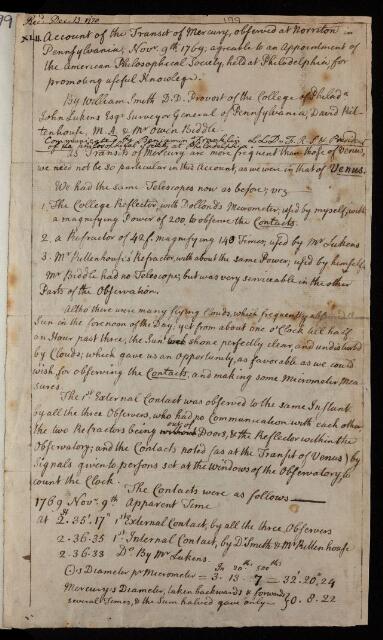 199
Rd. Dec. 13 1770
XLII. Account of the Transit of Mercury, observed at Norriton in
Pennsylvania, Novr. 9th 1769; agreable to an Appointment of
the american Philosophical Society, held at Philadelphia, for
promoting useful Knowlege.
By William Smith D.D. Provost of the College of Philada.
John Lukens Esqr. Surveyor General of Pennsylvania, David Rit-
tenhouse, M.A. & Mr. Owen Biddle.
Communicated by Benjamin Franklin L.L.D. F.R.S. & President
of the Philosophical Society at Philadelphia.
As Transits of Mercury are more frequent than those of Venus,
we need not be so particular in this Account, as we were in that of Venus.
We had the same Telescopes now as before; viz
1. The College Reflector, with Dollond's Micrometer, used by myself, with
a magnifying Power of 200, to observe the Contacts.
2. a Refractor of 42 f. magnifying 140 Times; used by Mr. Lukens
3. Mr. Rittenhouse's Refractor, with about the same Power; used by himself.
Mr. Biddle had no Telescope; but was very serviceable in the other
Parts of the Observation.
Altho there were many flying Clouds, which frequently
Sun in the forenoon of the Day; yet from about one o'Clock till half
an Hour past three, the Sun shone perfectly clear, and undisturbed
by Clouds; which gave us an Opportunity, as favorable as we could
wish for observing the Contacts, and making some Micrometer Mea-
sures.
The 1st External Contact was observed to the same Instant
by all the three Observers, who had no Communication with each other
the two Refractors being out of Doors, & the Reflector within the
Observatory; and the Contacts noted (as at the Transit of Venus) by
Signals given to persons set at the windows of the Observatory, to
count the Clock.
The Contacts were as follows
1769 Novr. 9th Apparent Time
At 2. 35'. 17" 1st External Contact, by all the three Observers
2. 36. 35 1st Internal Contact, by Dr. Smith & Mr. Rittenhouse
2. 36. 33 Do. By Mr. Lukens.
In 20ths 500ths
⊙'s Diameter pr Micrometer = 3. 13. 7 = 32'. 20". 24
Mercury's Diameter, taken backwards & forwards
several Times, & the Sum halved gave only 0. 8. 22